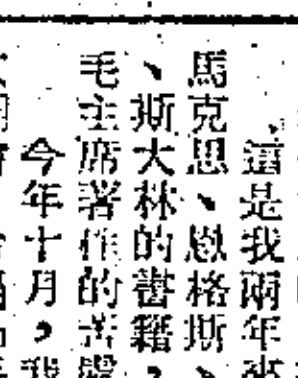 這是我兩年來
馬克思、恩格斯、
、斯大林的書籍，
毛主席著作的
今年十月，我